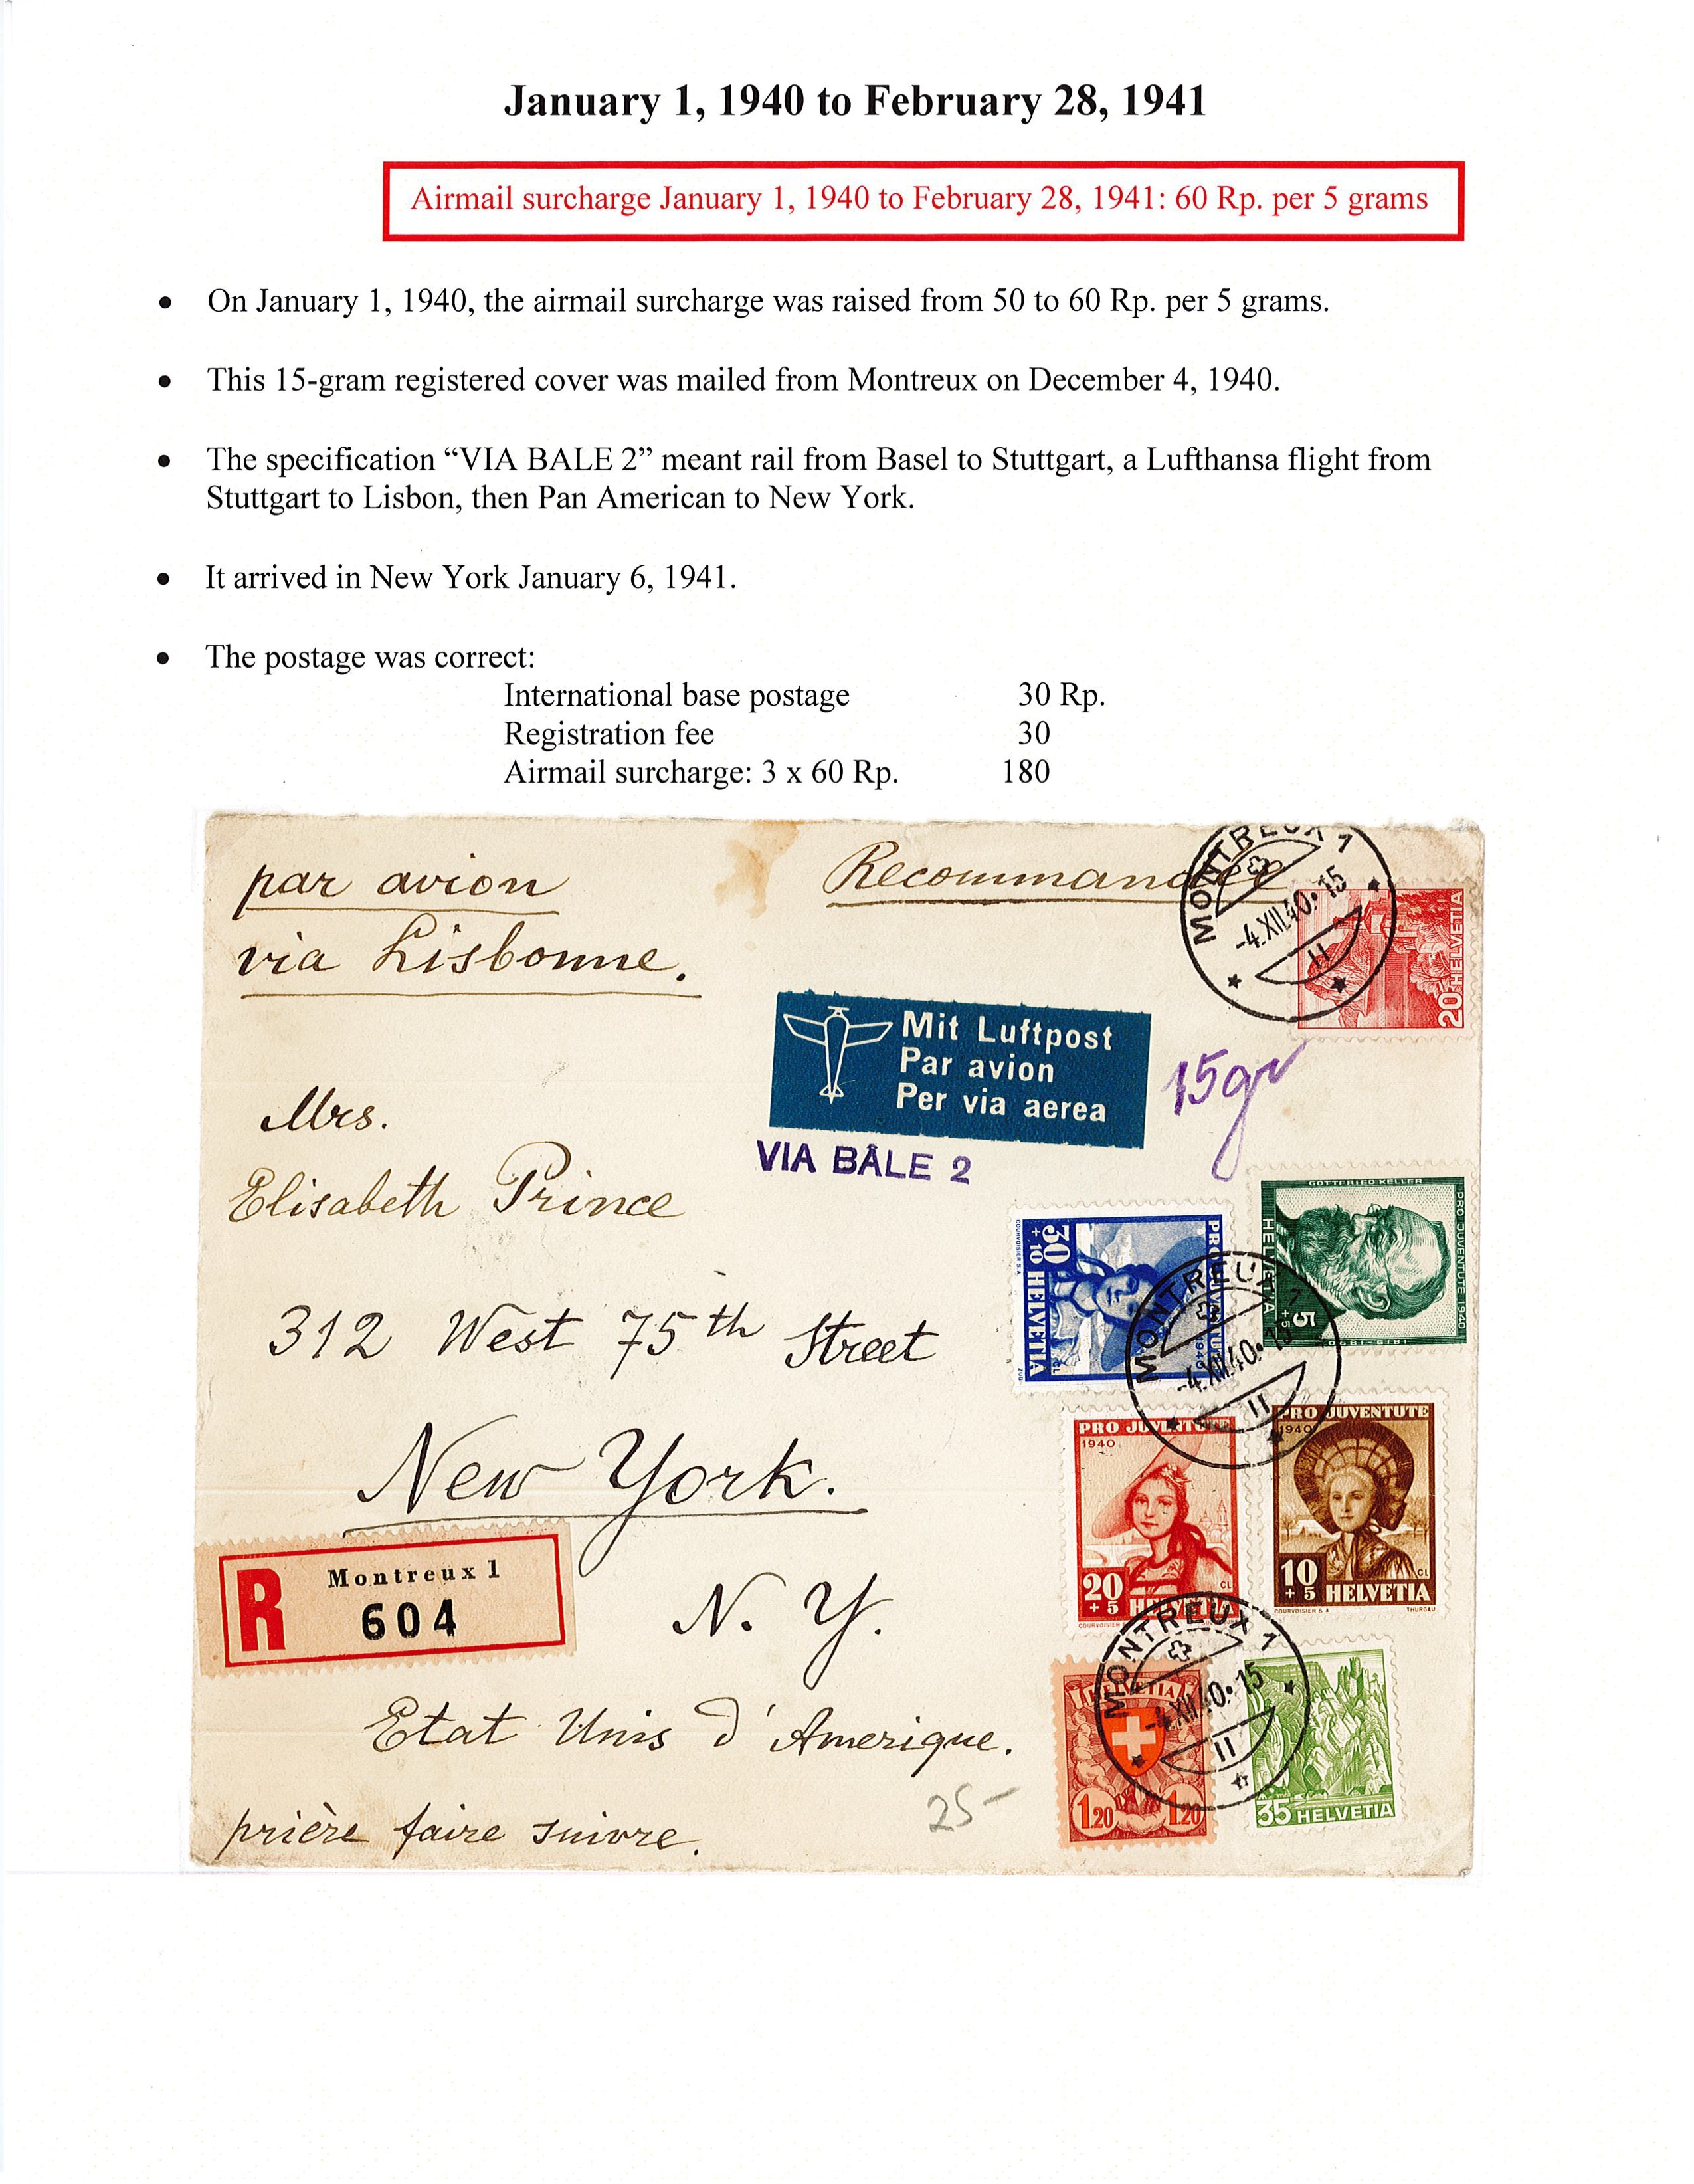 January 1, 1940 to February 28, 1941
Airmail surcharge January 1, 1940 to February 28, 1941: 60 Rp. per 5 grams
• On January 1, 1940, the airmail surcharge was raised from 50 to 60 Rp. per 5 grams.
• This 15-gram registered cover was mailed from Montreux on December 4, 1940.
• The specification “VIA BALE 2” meant rail from Basel to Stuttgart, a Lufthansa flight from
Stuttgart to Lisbon, then Pan American to New York.
• It arrived in New York January 6, 1941.
• The postage was correct:
International base postage 30 Rp.
Registration fee 30
Airmail surcharge: 3 x 60 Rp. 180
par avion
via Lisbonne.
Recommandée
MONTREUX 1
-4.XII.40.15
II
20 HELVETIA
Mit Luftpost
Par avion
Per via aerea
15gr
VIA BÂLE 2
Mrs.
Elisabeth Prince
312 West 75th Street
New York.
N. Y.
Etat Unis d'Amerique.
prière faire suivre.
25-
R
Montreux 1
604
GOTTFRIED KELLER
PRO JUVENTUTE 1940
HELVETIA
5
+5
1819-1890
PRO JUVENTUTE
1940
30
+10
HELVETIA
COURVOISIER S.A.
ZUG
MONTREUX 1
-4.XII.40.15
II
PRO JUVENTUTE
1940
20
+5
HELVETIA
CL
COURVOISIER
PRO JUVENTUTE
1940
10
+5
HELVETIA
CL
COURVOISIER S A
THURGAU
MONTREUX 1
-4.XII.40.15
II
HELVETIA
1.20 1.20
35 HELVETIA